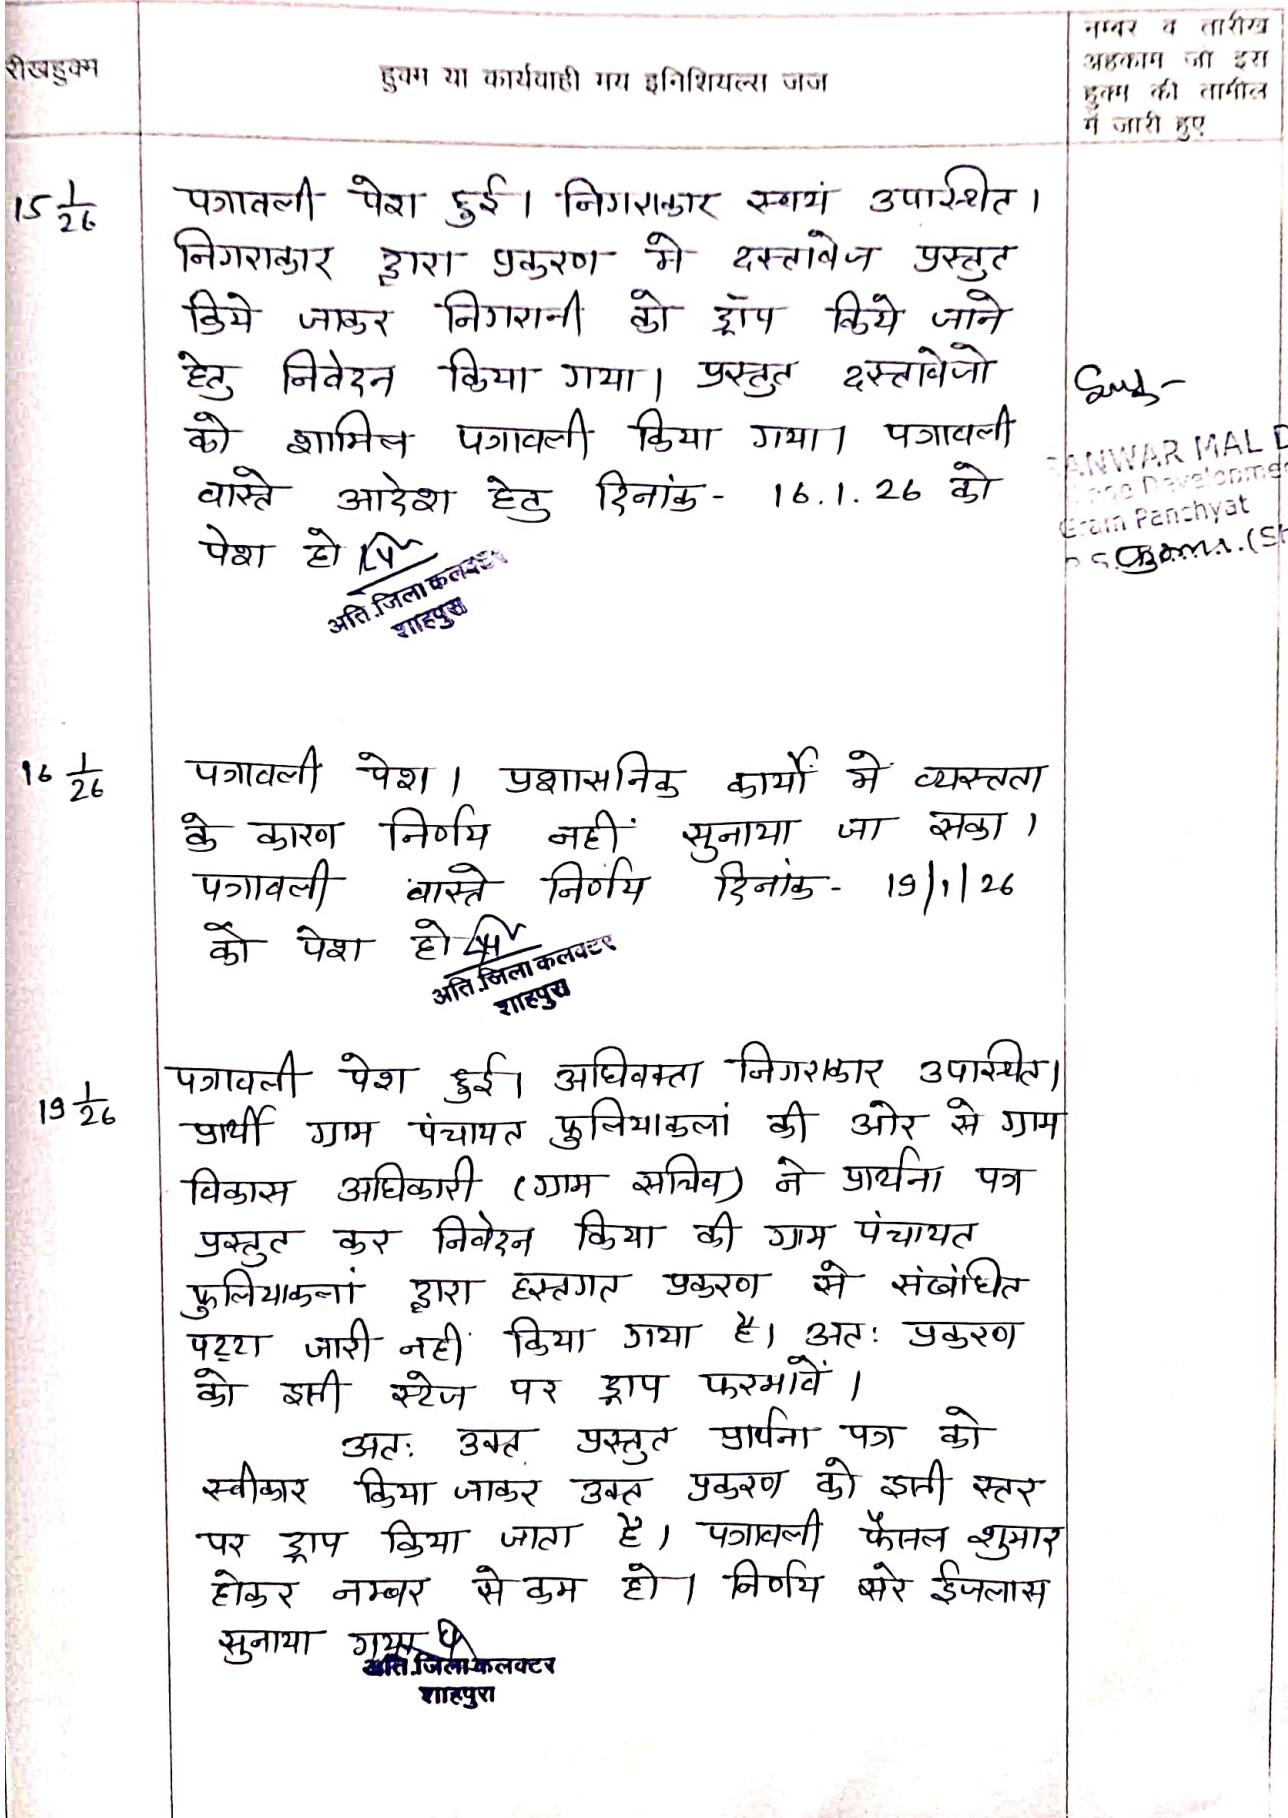 रीखहुक्म
हुक्म या कार्यवाही मय इनिशियल्स जज
नम्बर व तारीख
अहकाम जो इस
हुक्म की तामील
में जारी हुए
15 1/26
पत्रावली पेश हुई। निगराकार स्वयं उपास्थित।
निगराकार द्वारा प्रकरण मे दस्तावेज प्रस्तुत
किये जाकर निगरानी को ड्रॉप किये जाने
हेतु निवेदन किया गया। प्रस्तुत दस्तावेजो
को शामिल पत्रावली किया गया। पत्रावली
वास्ते आदेश हेतु दिनांक- 16.1.26 को
पेश हो
अति.जिला कलक्टर
शाहपुरा
ANWAR MAL D
Developme
Gram Panchyat
16 1/26
पत्रावली पेश। प्रशासनिक कार्यों मे व्यस्तता
के कारण निर्णय नहीं सुनाया जा सका।
पत्रावली वास्ते निर्णय दिनांक- 19/1/26
को पेश हो
अति.जिला कलक्टर
शाहपुरा
19 1/26
पत्रावली पेश हुई। अधिवक्ता निगराकार उपास्थित।
प्रार्थी ग्राम पंचायत फुलियाकलां की ओर से ग्राम
विकास अधिकारी (ग्राम सचिव) ने प्रार्थना पत्र
प्रस्तुत कर निवेदन किया की ग्राम पंचायत
फुलियाकलां द्वारा हस्तगत प्रकरण से संबंधित
पट्टा जारी नही किया गया है। अतः प्रकरण
को इसी स्टेज पर ड्राप फरमावें।
अतः उक्त प्रस्तुत प्रार्थना पत्र को
स्वीकार किया जाकर उक्त प्रकरण को इसी स्तर
पर ड्राप किया जाता है। पत्रावली फैसल शुमार
होकर नम्बर से कम हो। निर्णय सरे ईजलास
सुनाया गया
अति.जिला कलक्टर
शाहपुरा